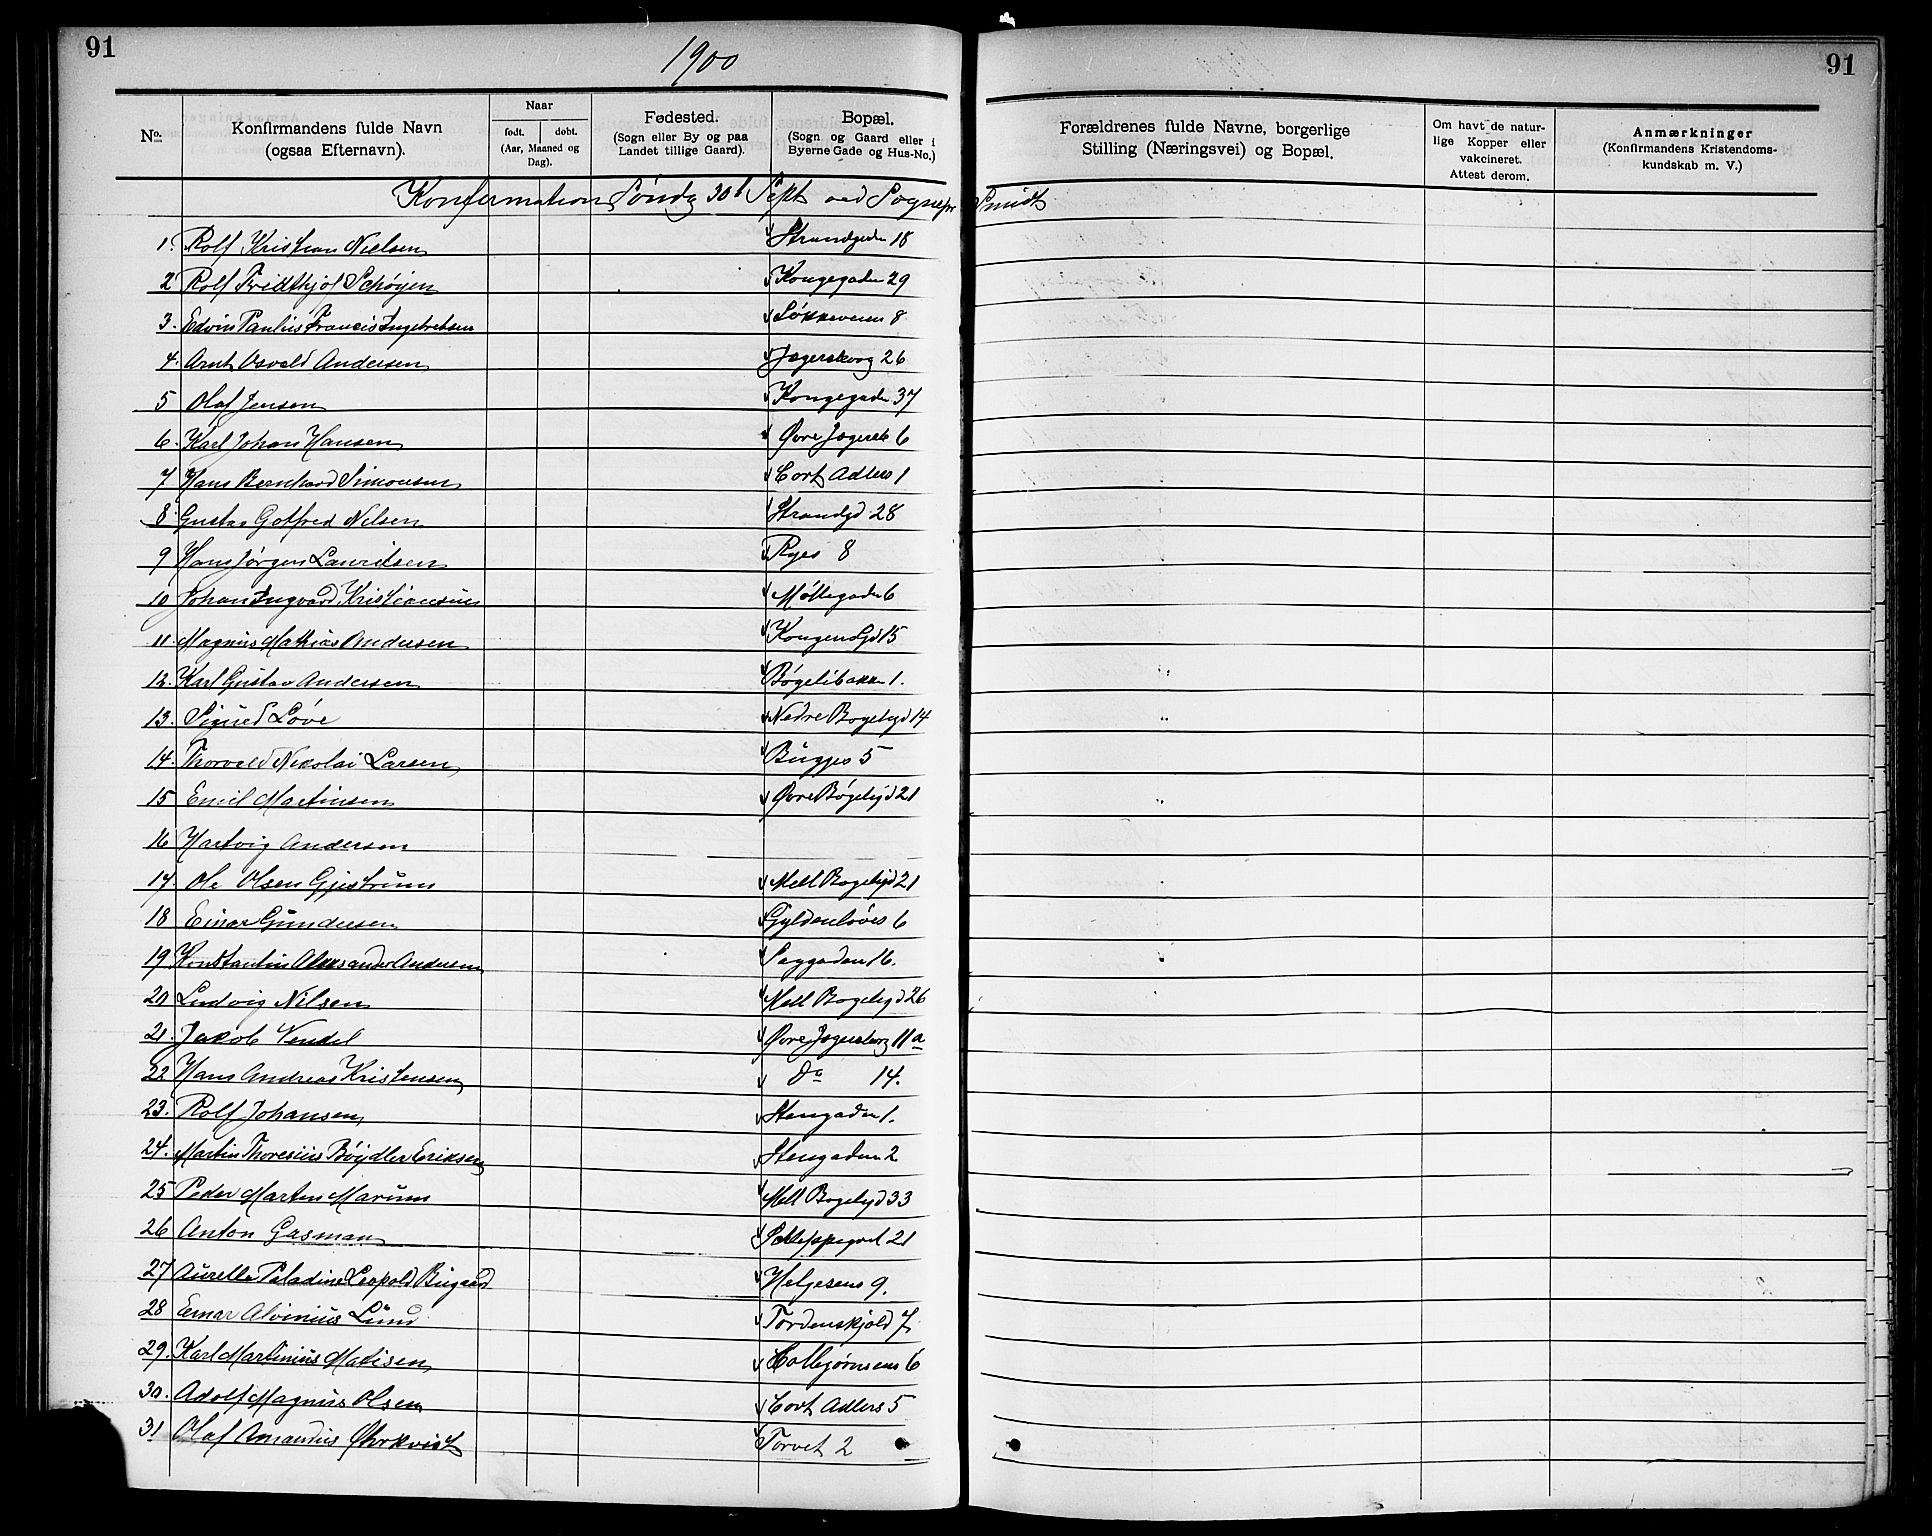 91
1900
91
No.
Konfirmandens fulde Navn
(ogsaa Efternavn).
Naar
født. døbt.
(Aar, Maaned og
Dag).
Fødested.
(Sogn eller By og paa
Landet tillige Gaard).
Bopæl.
(Sogn og Gaard eller i
Byerne Gade og Hus-No.)
Forældrenes fulde Navne, borgerlige
Stilling (Næringsvei) og Bopæl.
Om havt de natur-
lige Kopper eller
vakcineret.
Attest derom.
Anmærkninger
(Konfirmandens Kristendoms-
kundskab m. V.)
Konfirmation Søndg 30t Sept ved Sognepr Smidt
1. Rolf Kristian Nielsen Strandgaden 18
2 Rolf Fridthjof Schøyen Kongegaden 29
3. Edvin Paulus Francis Ingebretsen Løkkeveien 8
4. Arnt Osvald Andersen Jegersborg 26
5 Olaf Jensen Kongegaden 37
6. Karl Johan Hansen Øvre Jegersb 6
7 Hans Bernhard Simonsen Cort Adlers 1
8 Gustav Gotfred Nilsen Strandgd 28
9 Hans Jørgen Lauritsen Ryes 8
10 Johan Ingvard Kristiansen Møllegaden 6
11. Magnus Mathias Andersen Kongensgd 15
12. Karl Gustav Andersen Bøgelibakken 1.
13. Sigurd Løve Nedre Bogeligd 14
14. Thorvald Nikolai Larsen Bugges 5
15 Emil Martinsen Øvre Bøgeligd 21
16 Hartvig Andersen
17. Ole Olsen Gjestrum Mell Bogeligd 21
18 Einar Gundersen Gyldenløves 6
19 Konstantin Aleksander Andersen Saggaden 16.
20 Ludvig Nilsen Mell Bogeligd 26
21. Jakob Vendel Øvre Jegersborg 11a
22 Hans Andreas Kristensen do 14.
23. Rolf Johansen Stengaden 1.
24. Martin Thoresius Bøydler Eriksen Stengaden 2
25 Peder Marten Marum Mell Bogeligd 33
26 Anton Gasman Schleppegrel 21
27 Aurelle Paladine Leopold Bugaard Helgesens 9.
28 Einar Alvinius Lund Tordenskjold 7.
29. Karl Martinius Matisen Colbjørnsens 6
30. Adolf Magnus Olsen Cort Adlers 5
31 Olaf Amandus Ørkvist Torvet 2